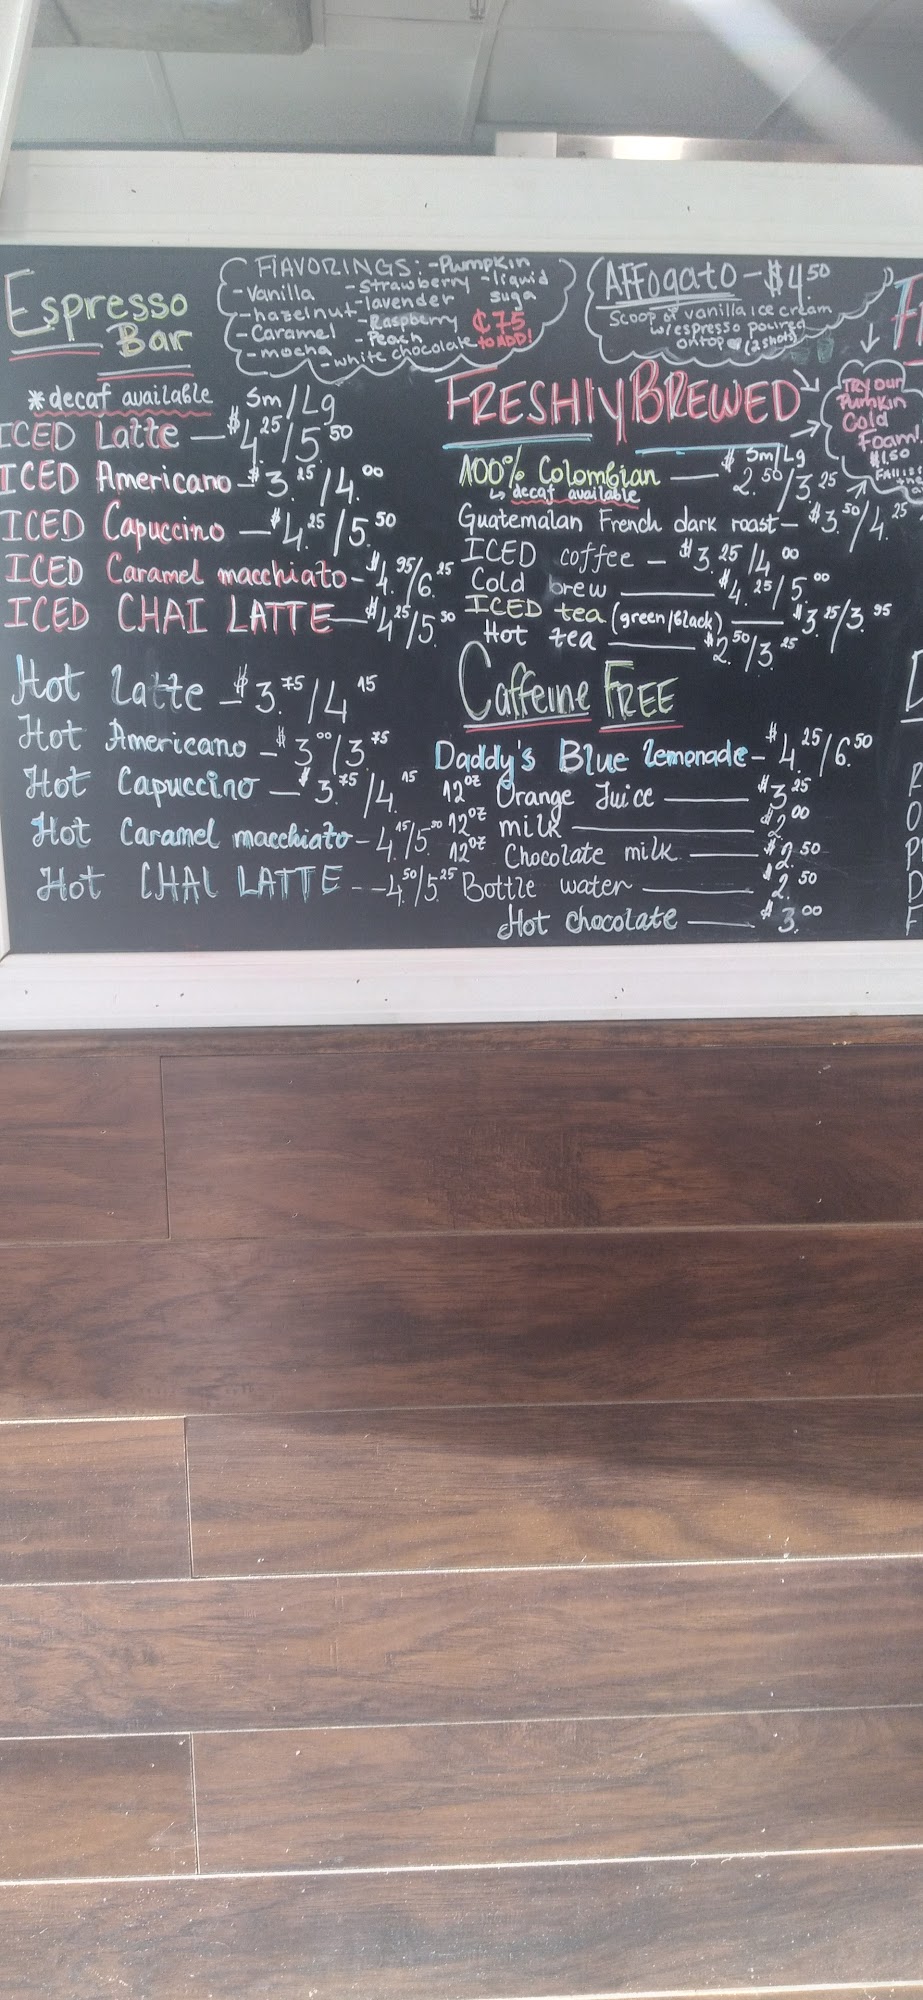 Espresso
Bar
FlAVORINGS: -Pumpkin
-Vanilla -strawberry -liquid
-hazelnut -lavender suga
-Caramel -Raspberry ¢75
-mocha -Peach to ADD!
-white chocolate
AFFogato - $4.50
Scoop of vanilla ice cream
w/espresso poured
ontop (2 shots)
*decaf available Sm/Lg
ICED Latte — $4.25/5.50
ICED Americano - $3.25/4.00
ICED Capuccino — $4.25/5.50
ICED Caramel macchiato - $4.95/6.25
ICED CHAI LATTE — $4.25/5.50
Hot Latte - $3.75/4.15
Hot Americano - $3.00/3.75
Hot Capuccino — $3.75/4.15
Hot Caramel macchiato - 4.15/5.50
Hot CHAI LATTE -- 4.50/5.25
FRESHlY BREWED
TRY our
Pumkin
Cold
Foam!
$1.50
$ Sm/Lg
100% Colombian — 2.50/3.25
decaf available
Guatemalan French dark roast - $3.50/4.25
ICED coffee - $3.25/4.00
Cold brew — $4.25/5.00
ICED tea (green/Black) — $3.25/3.95
Hot tea — $2.50/3.25
Caffeine FREE
Daddy's Blue lemonade - $4.25/6.50
12oz Orange Juice — $3.25
12oz milk — $2.00
12oz Chocolate milk — $2.50
Bottle water — $2.50
Hot chocolate — $3.00